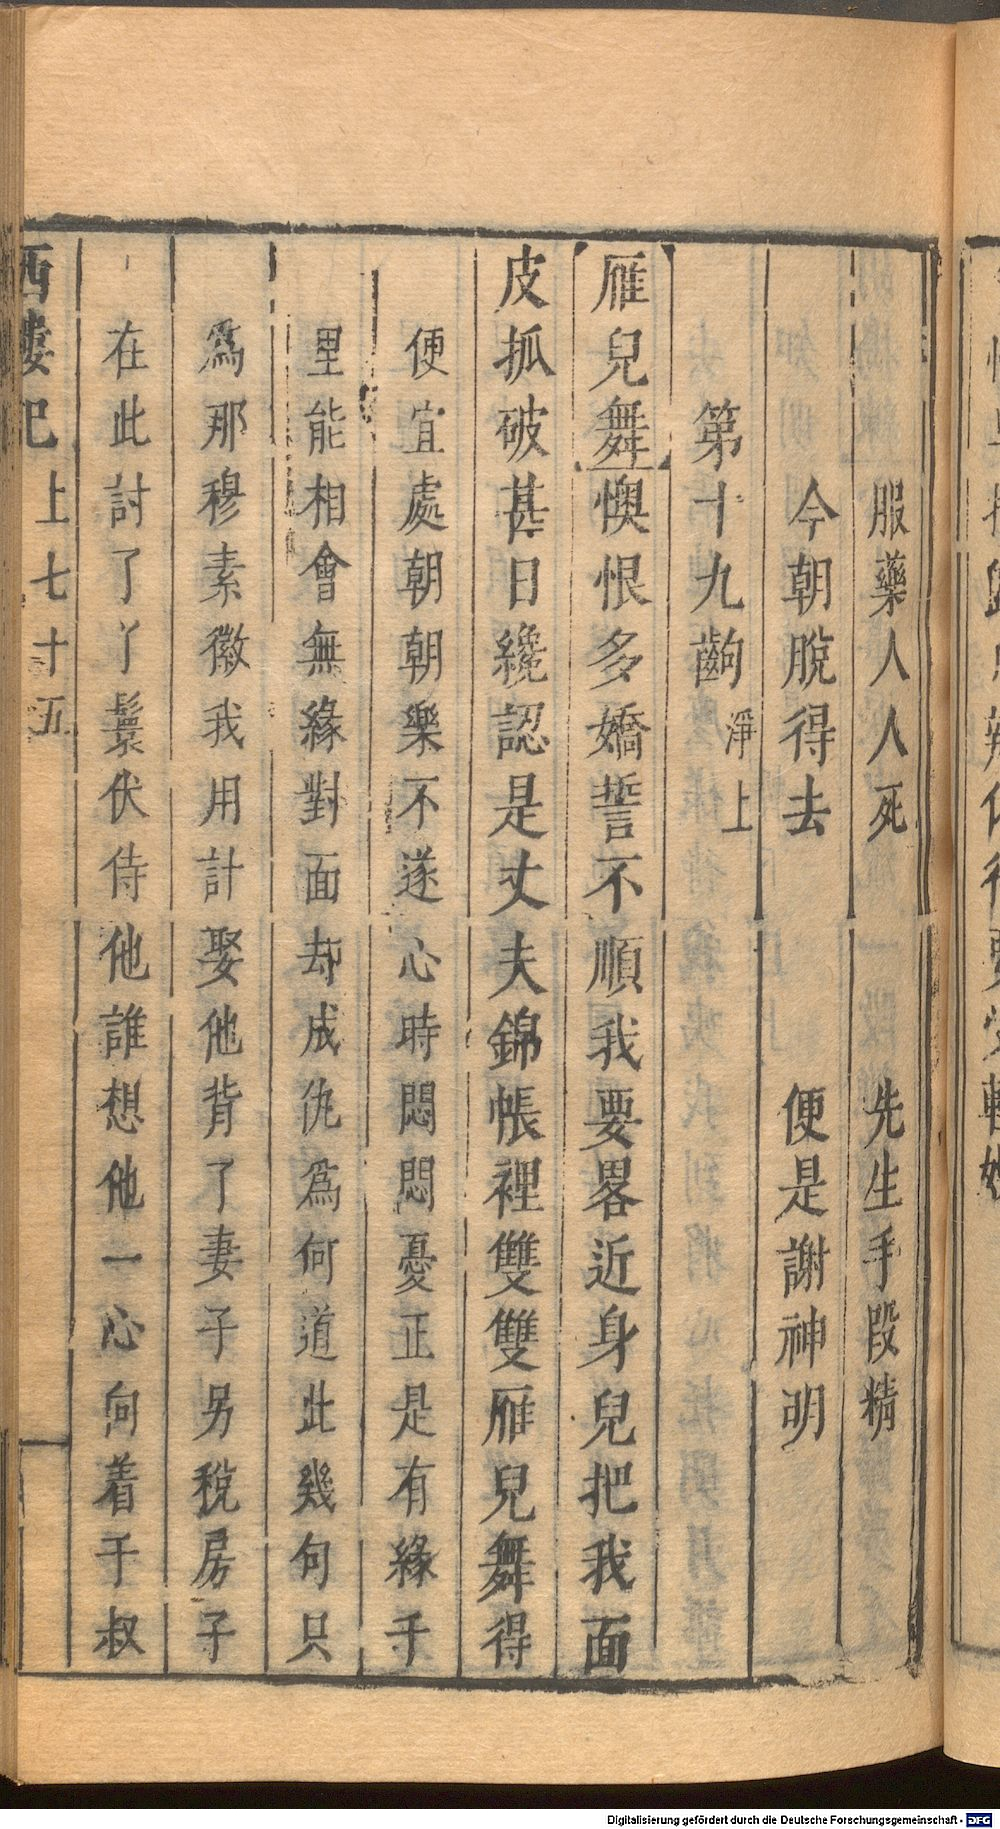 服藥人人死　先生手段精
今朝脫得去　便是謝神明
第十九齣　淨上
雁兒舞懊恨多嬌誓不順我要畧近身兒把我面
皮抓破甚日纔認是丈夫錦帳裡雙雙雁兒舞得
便宜處朝朝樂不遂心時悶悶憂正是有緣千
里能相會無緣對面却成仇爲何道此幾句只
爲那穆素徽我用計娶他背了妻子另稅房子
在此討了丫鬟伏侍他誰想他一心向着于叔
西樓記　上　七十五
Digitalisierung gefördert durch die Deutsche Forschungsgemeinschaft - DFG